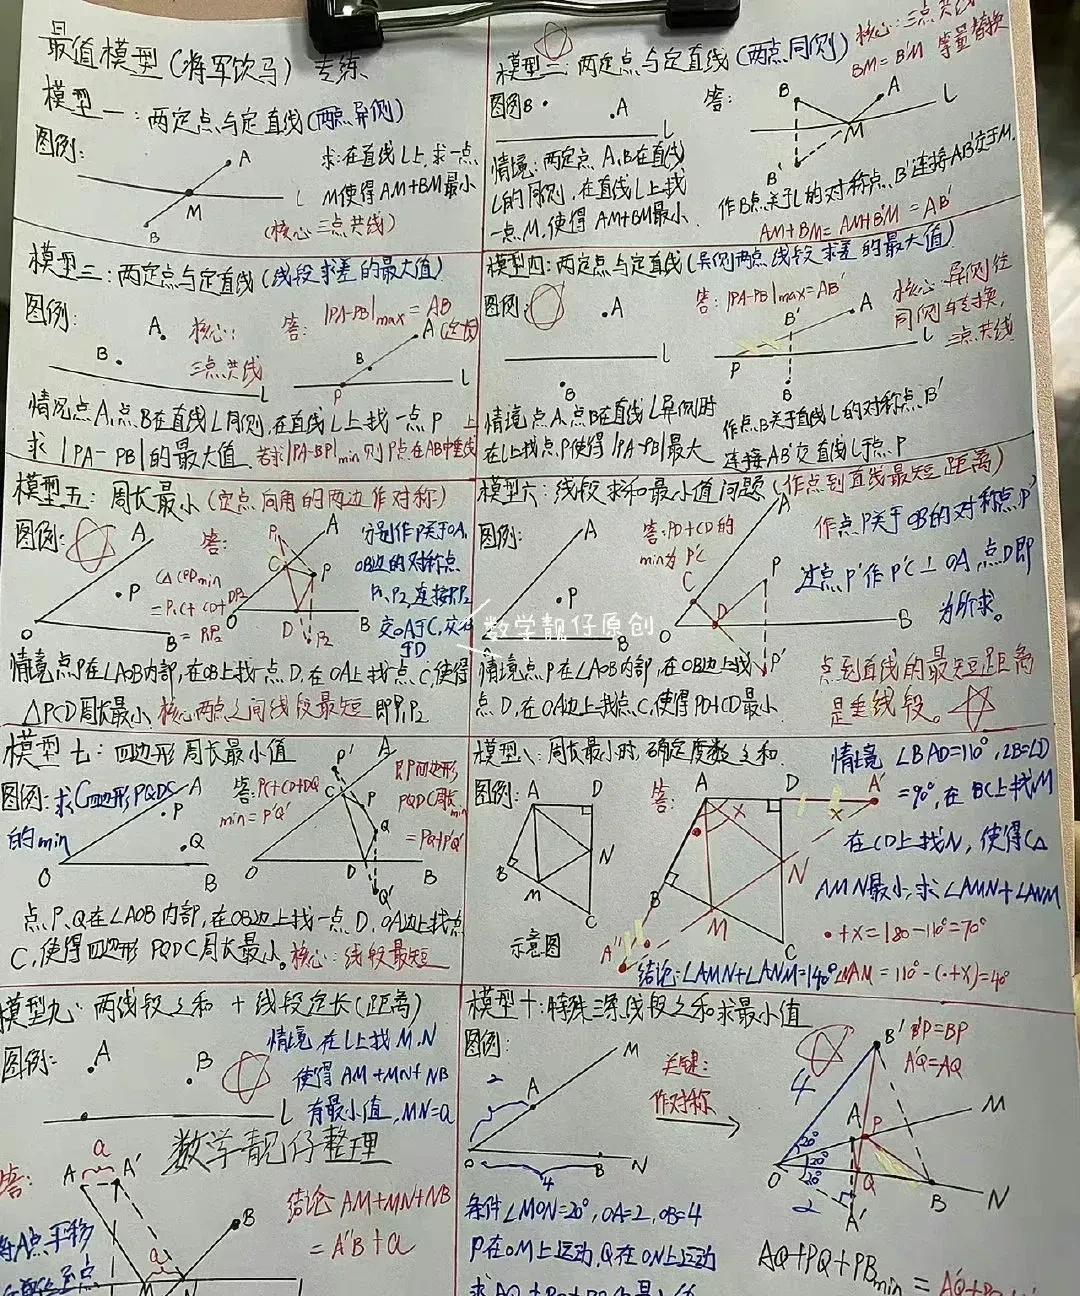 最值模型(将军饮马)专练
模型一:两定点与定直线(两点异侧)
图例:
A
M
B
l
求:在直线L上求一点
M使得AM+BM最小
(核心三点共线)
模型二:两定点与定直线(两点同侧)
核心:三点共线
BM=B'M 等量替换
图例
B
A
L
答:
B
A
L
M
B'
情境:两定点A,B在直线
L的同侧,在直线L上找
一点M,使得AM+BM最小
作B点关于L的对称点B'连接AB'交于M.
AM+BM=AM+B'M=AB'
模型三:两定点与定直线(线段求差的最大值)
图例:
A
B
L
核心:
三点共线
答:
|PA-PB|max=AB
A
B
P
L
情况点A,点B在直线L同侧,在直线L上找一点P
求|PA-PB|的最大值
若求|PA-BP|min则P点在AB中垂线上
模型四:两定点与定直线(异侧两点线段求差的最大值)
图例:
A
L
B
答:|PA-PB|max=AB'
A
B'
P
L
B
核心:异侧往
同侧转换,
三点共线
情境点A,点B在直线L异侧时
在L上找点P使得|PA-PB|最大
作点B关于直线L的对称点B'
连接AB'交直线L于点P
模型五:周长最小(定点向角的两边作对称)
图例:
A
P
O
B
答:
C△CPDmin
=P1C+CD+DP2
=P1P2
P1
A
C
P
O
D
B
P2
分别作P关于OA,
OB边的对称点
P1,P2,连接P1P2
交OA于C,交OB
于D
情境点P在∠AOB内部,在OB上找一点D,在OA上找点C,使得
△PCD周长最小,核心两点之间线段最短即P1P2
模型六:线段求和最小值问题(作点到直线最短距离)
图例:
A
P
答:PD+CD的
min为P'C
A
C
P
D
O
B
P'
作点P关于OB的对称点P'
过点P'作P'C⊥OA,点D即
为所求。
数学靓仔原创
情境点P在∠AOB内部,在OB边上找
点D,在OA边上找点C,使得PD+CD最小
点到直线的最短距离
是垂线段。
模型七:四边形周长最小值
图例:求C四边形PQDC
的min
A
P
Q
O
B
答:PC+CD+DQ
min=P'Q'
P'
A
C
P
Q
O
D
B
Q'
即四边形
PQDC周长min
=PQ+P'Q'
点P、Q在∠AOB内部,在OB边上找一点D,OA边上找点
C,使得四边形PQDC周长最小。核心:线段最短
模型八:周长最小时,确定度数之和
图例:
A
D
B
N
M
C
示意图
答:
A
D
A'
B
N
M
C
A''
情境∠BAD=110°,∠B=∠D
=90°,在BC上找M
在CD上找N,使得C△
AMN最小,求∠AMN+∠ANM
•+x=180-110°=70°
结论:∠AMN+∠ANM=140°
∠NAM=110°-(•+x)=40°
模型九:两线段之和+线段定长(距离)
图例:
A
B
L
情境在L上找M,N
使得AM+MN+NB
有最小值,MN=a
数学靓仔整理
答:
a
A
A'
B
a
M
N
将A点平移
结论AM+MN+NB
=A'B+a
模型十:特殊三条线段之和求最小值
图例:
M
A
2
O
4
B
N
关键:
作对称
B'
B'P=BP
A'Q=AQ
4
A
P
M
20°
20°
20°
O
Q
B
N
2
A'
条件∠MON=20°,OA=2,OB=4
P在OM上运动,Q在ON上运动
AQ+PQ+PBmin=